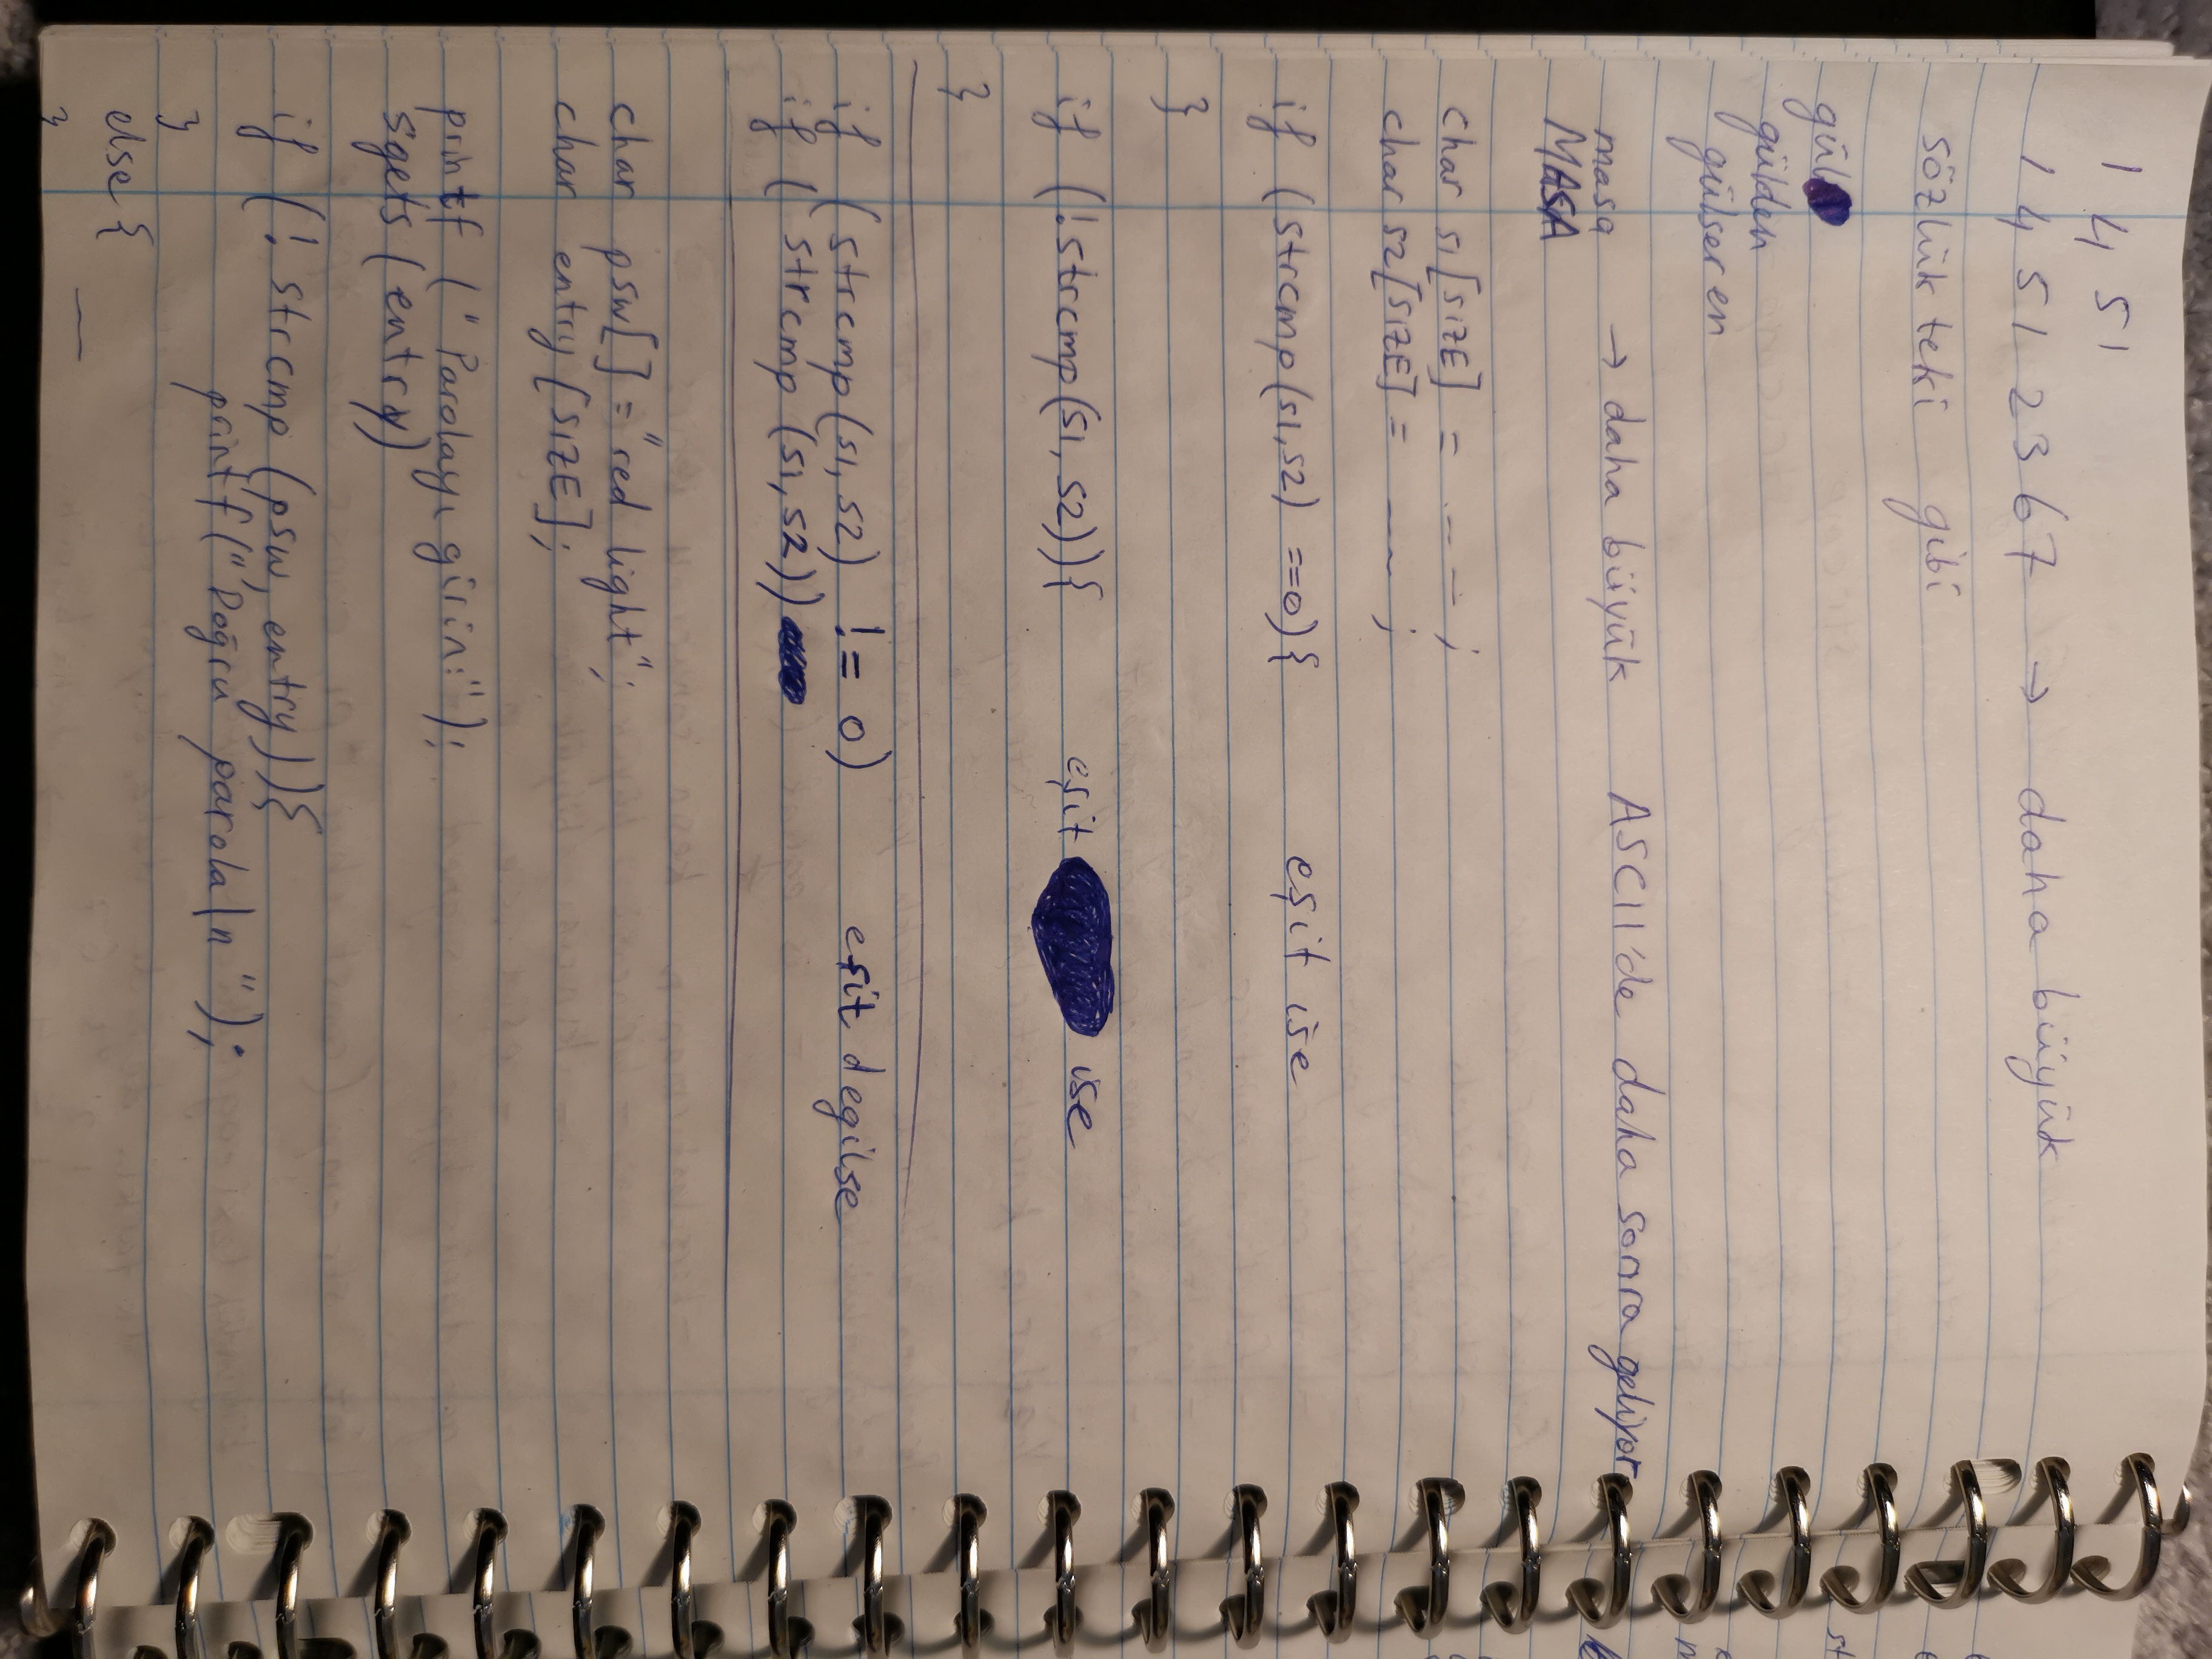 1 4 51
1 4 51 23 67 → daha büyük
sözlükteki gibi
gül
gülden
gülseren
masa → daha büyük ASCII'de daha sonra geliyor
MASA
char s1[SIZE] = --- ;
char s2[SIZE] = --- ;
if (strcmp(s1,s2) ==0){ eşit ise
}
if (!strcmp(s1, s2)){ eşit ise
}
if (strcmp(s1, s2) != 0) eşit degilse
if ( strcmp (s1,s2))
char psw[] ="red light";
char entry [SIZE];
printf (" Parolayı girin:");
sgets (entry)
if (! strcmp (psw, entry)){
printf(" Doğru parola\n ");
}
else {
—
}